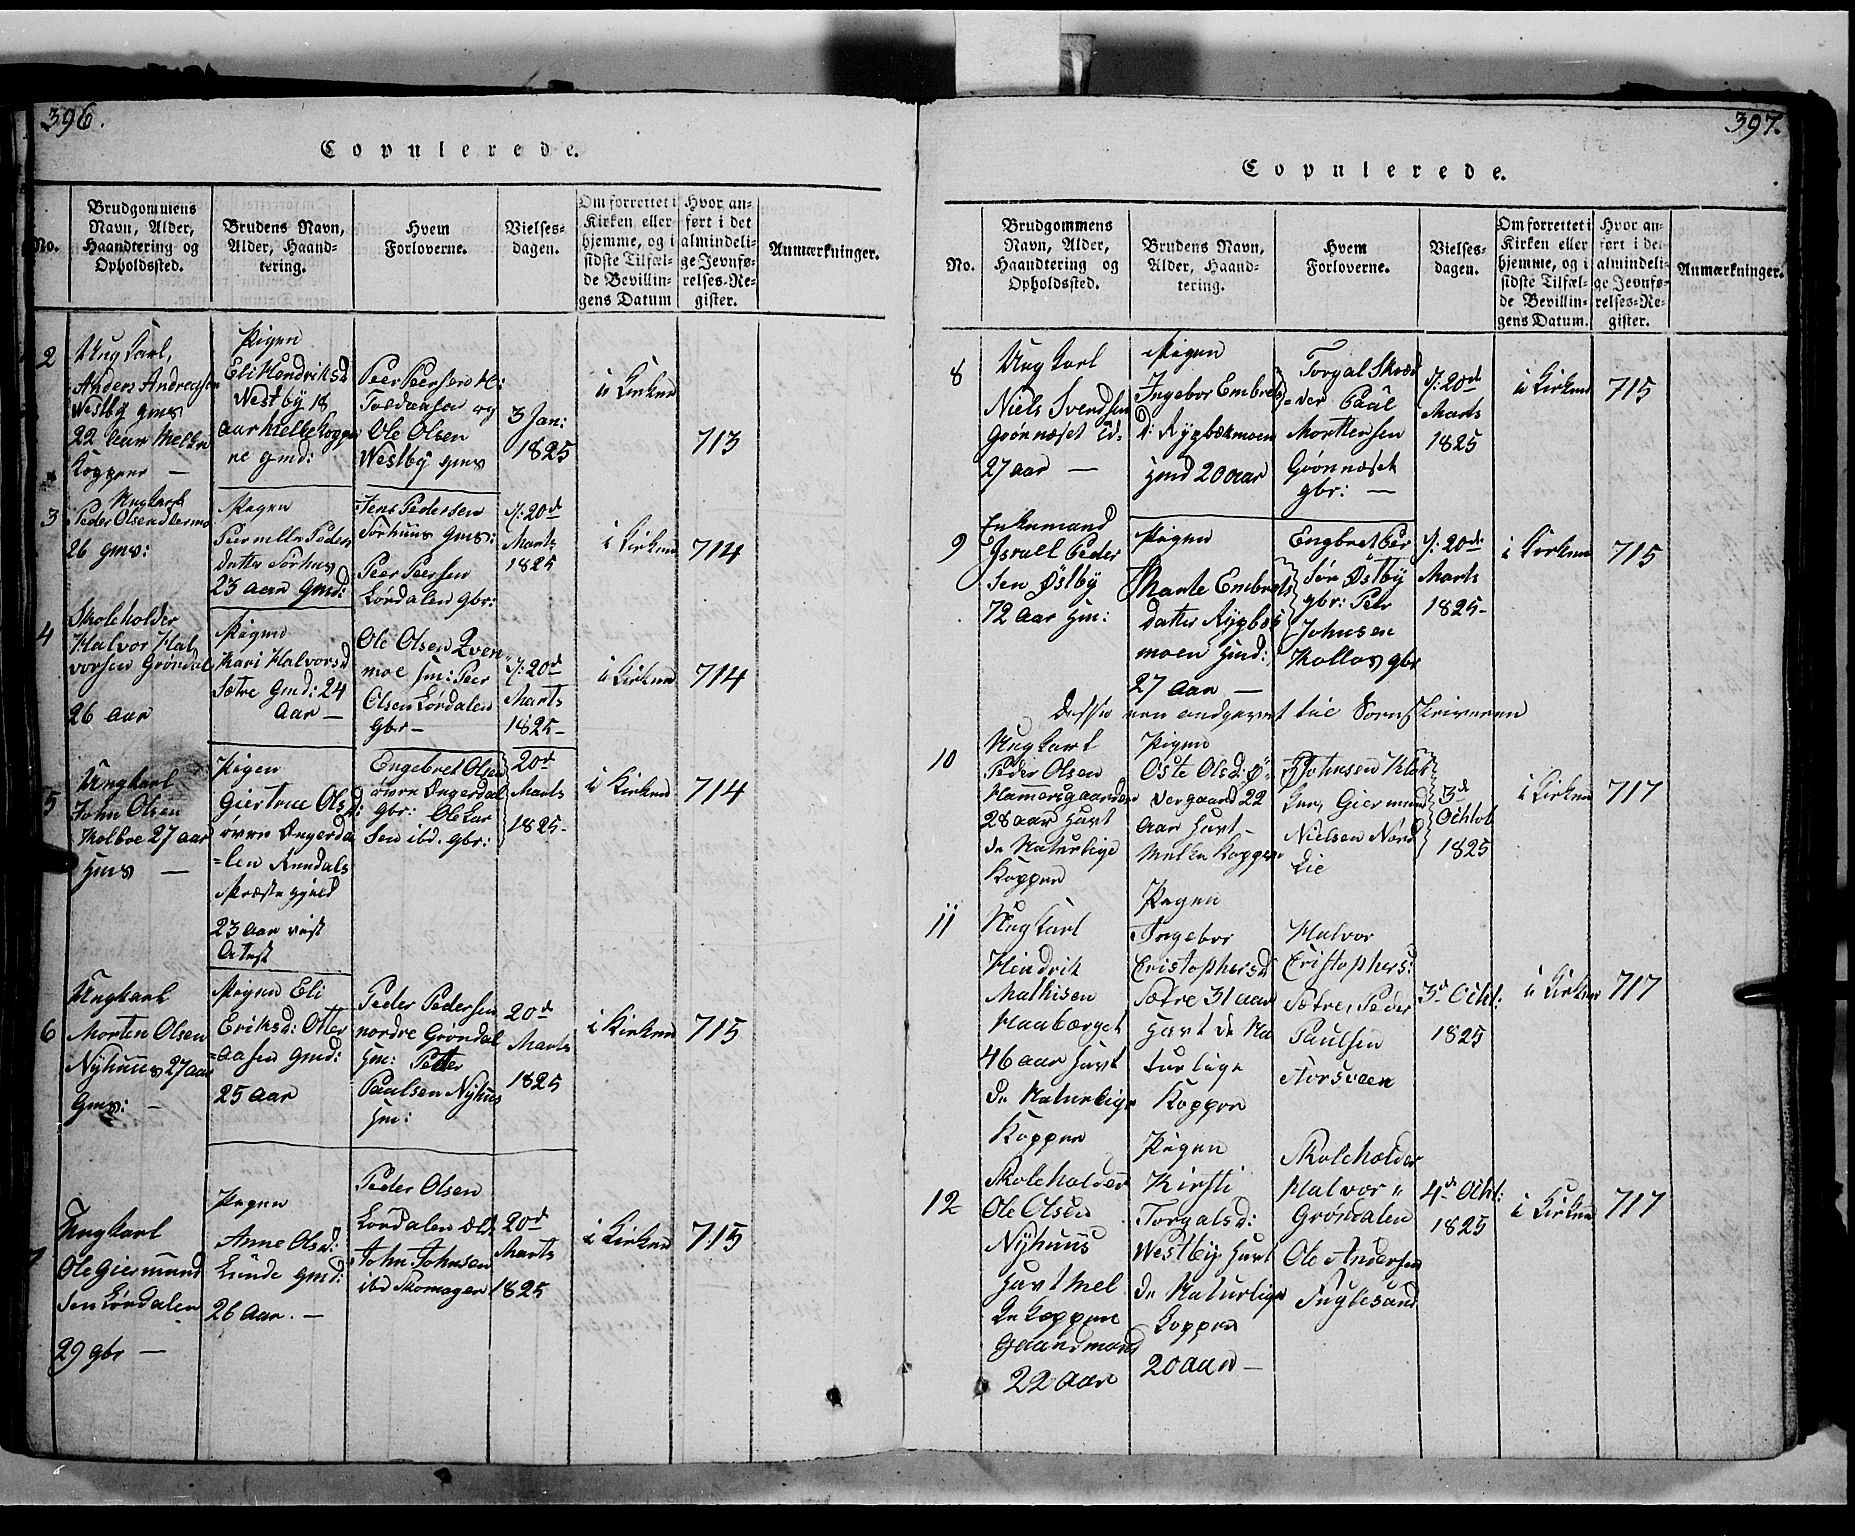 396.
Copulerede.
No.
Brudgommens
Navn, Alder,
Haandtering og
Opholdssted.
Brudens Navn,
Alder, Haand-
tering.
Hvem
Forloverne.
Vielses-
dagen.
Om forrettet i
Kirken eller
hjemme, og i
sidste Tilfæl-
de Bevillin-
gens Datum
Hvor an-
ført i det
almindeli-
ge Jevnfø-
relses-Re-
gister.
Anmærkninger.
2
Ung Karl,
Anders Andreasen
Westby gms
22 aar
Koppene —
Pigen
Eli Hendriksd
Westby 18
aar
ne gmd:
Peer Peersen
og
Ole Olsen
Westby gms
3 Jan:
1825
i Kirken
713
3
Ungkarl
Peder Olsen
26 gms:
Pigen
Pernelle Peders
datter Sorhus
23 aar gmd:
Jens Pedersen
Sorhuus gms:
Peer Peersen
Lørdalen gbr:
/: 20de
Marts
1825
i Kirken
714
4
Skoleholder
Halvor Hal
vorsen Grøndal
26 aar
Pigen
Kari Halvorsd
Sætre gmd: 24
aar —
Ole Olsen Qven
moe hm: Peer
Olsen Lørdalen
gbr —
/: 20de
Marts
1825 -
i Kirken
714
5
Ungkarl
John Olsen
Kolboe 27 aar
hms —
Pigen
Giertrue Olsd:
øvre Engerda
=len Rendals
Præstegjeld
23 aar vist
Atest
Engebret Olsen
øvre Engerdal
gbr: Ole Lar
sen ibd. gbr:
20de
Marts
1825 -
i Kirken
714
6
Ungkarl
Morten Olsen
Nyhuus 27 aar
gms: —
Pigen Eli
Eriksd: Otter
=aasen gmd:
25 aar
Peder Pedersen
nordre Grøndal
hm: Peder
Paulsen Nyhus
hm:
20de
Marts
1825
i Kirken
715
7
Ungkarl
Ole Giermund
sen Lørdalen
29 gbr —
Pigen
Anne Olsd:
Lunde gmd:
26 aar. —
Peder Olsen
Lørdalen
John Johnsen
ibd Skomager
20de
Marts
1825
i Kirken
715
397.
Copulerede.
No.
Brudgommens
Navn, Alder,
Haandtering og
Opholdssted.
Brudens Navn,
Alder, Haand-
tering.
Hvem
Forloverne.
Vielses-
dagen.
Om forrettet i
Kirken eller
hjemme, og i
sidste Tilfæl-
de Bevillin-
gens Datum.
Hvor an-
ført i det
almindeli-
ge Jevnfø-
relses-Re-
gister.
Anmærkninger.
8
Ung Karl
Niels Svendsen
Grønnæset
27 aar —
Pigen
Ingebor Embrets
D: Rygbækmoen
hmd 20 aar
Torgal Skræd
=der Paul
Mortensen
Grønnæset
gbr: —
/: 20de
Marts
1825
i Kirken
715
9
Enkemand
Israel Peder
sen Østby
72 aar hm:
Pigen
Marte Embrets
datter Rygbæs
moen hmd:
27 aar —
Engbret Per
Sør Østby
gbr: Peer
Johnsen
Kollos gbr
/: 20de
Marts
1825 -
i Kirken
715
Disse ere angevet til Sorenskriveren
10
Ungkarl
Peder Olsen
Hammersgaarden
28 aar havt
de Naturlige
Koppen
Pigen
Oste Olsd: Ø-
vergaard 22
aar havt
Koppen
Johnsen
Giermund
Nielsen Nord
Lie
3de
Ochtob
1825
i Kirken
717
11
Ungkarl
Hendrik
Mathisen
Haabærget
46 aar havt
de Naturlige
Koppen
Pigen
Ingebor
Cristophersd
Sætre 31 aar
havt de Na
turlige
Koppen
Halvor
Cristophers:
Sætre, Peder
Paulsen
Storsveen
3de Ocht:
1825
i Kirken
717
12
Skoleholder
Ole Olsen
Nyhuus
havt Mel
ke Koppene
Gaardmand
22 aar
Pigen
Kirsti
Torgalsd:
Westby havt
de Naturlige
Koppen
20 aar —
Skoleholder
Halvor "
Grøndalen
Ole Andersen
Fuglesand
4de Ocht:
1825
i Kirken
717